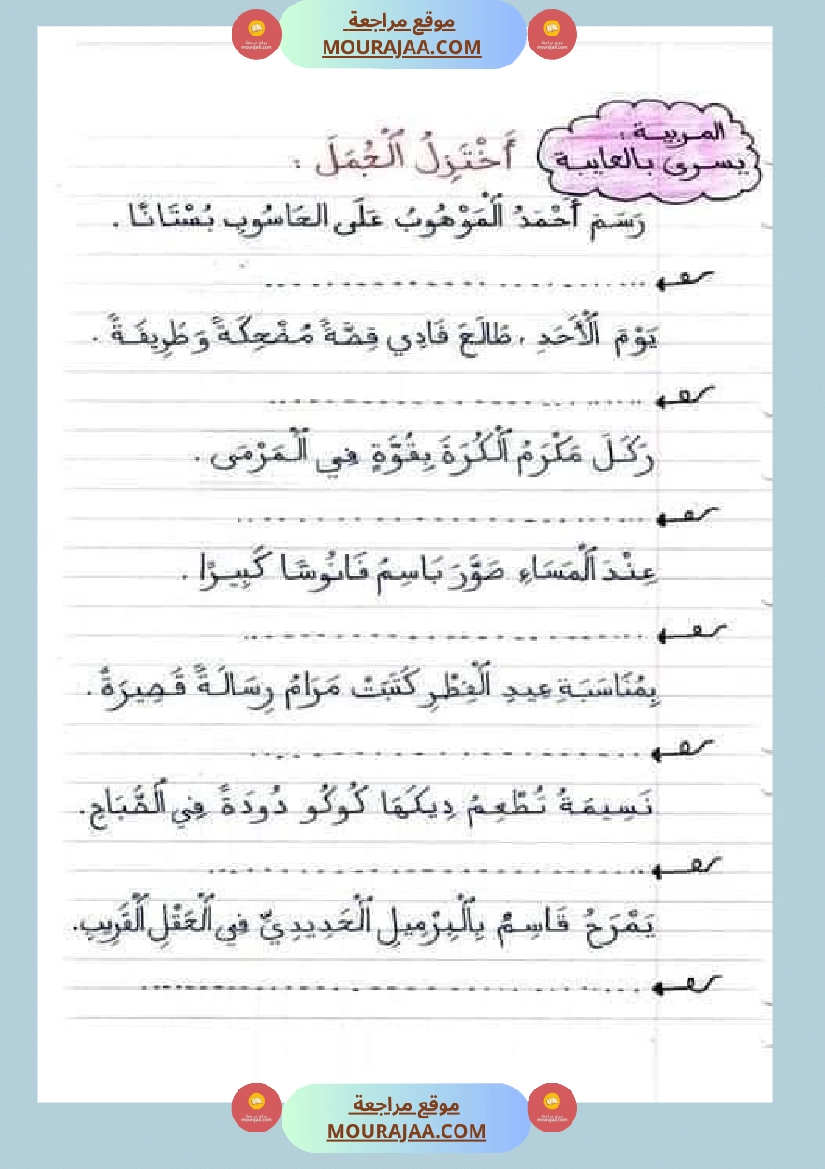 موقع مراجعة
MOURAJAA.COM
المربية :
يسرى بالعايبة
أَخْتَزِلُ ٱلْجُمَلَ :
رَسَمَ أَحْمَدُ ٱلْمَوْهُوبُ عَلَى الحَاسُوبِ بُسْتَانًا .
يَوْمَ ٱلْأَحَدِ ، طَالَعَ فَادِي قِصَّةً مُضْحِكَةً وَطَرِيفَةً .
رَكَلَ مَكْرَمُ ٱلْكُرَةَ بِقُوَّةٍ فِي ٱلْمَرْمَى .
عِنْدَ ٱلْمَسَاءِ صَوَّرَ بَاسِمُ فَانُوسًا كَبِيرًا .
بِمُنَاسَبَةِ عِيدِ ٱلْفِطْرِ كَتَبَتْ مَرَامُ رِسَالَةً قَصِيرَةً .
نَسِيمَةُ تُطْعِمُ دِيكَهَا كُوكُو دُودَةً فِي ٱلصَّبَاحِ .
يَمْرَحُ قَاسِمُ بِٱلْبِرْمِيلِ ٱلْحَدِيدِيِّ فِي ٱلْحَقْلِ ٱلْقَرِيبِ .
موقع مراجعة
MOURAJAA.COM